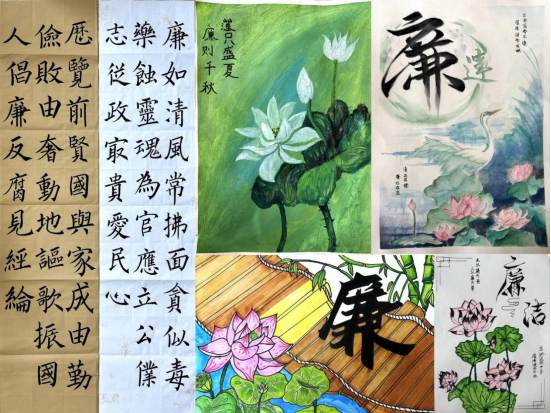 厯覽前賢國與家成由勤
儉敗由奢動地謳歌振國
人倡廉反腐見經綸
廉如清風常拂面貪似毒
藥蝕靈魂為官應立公僕
志從政冣貴愛民心
蓮只盛夏
廉則千秋
廉
蓮
廉
廉洁